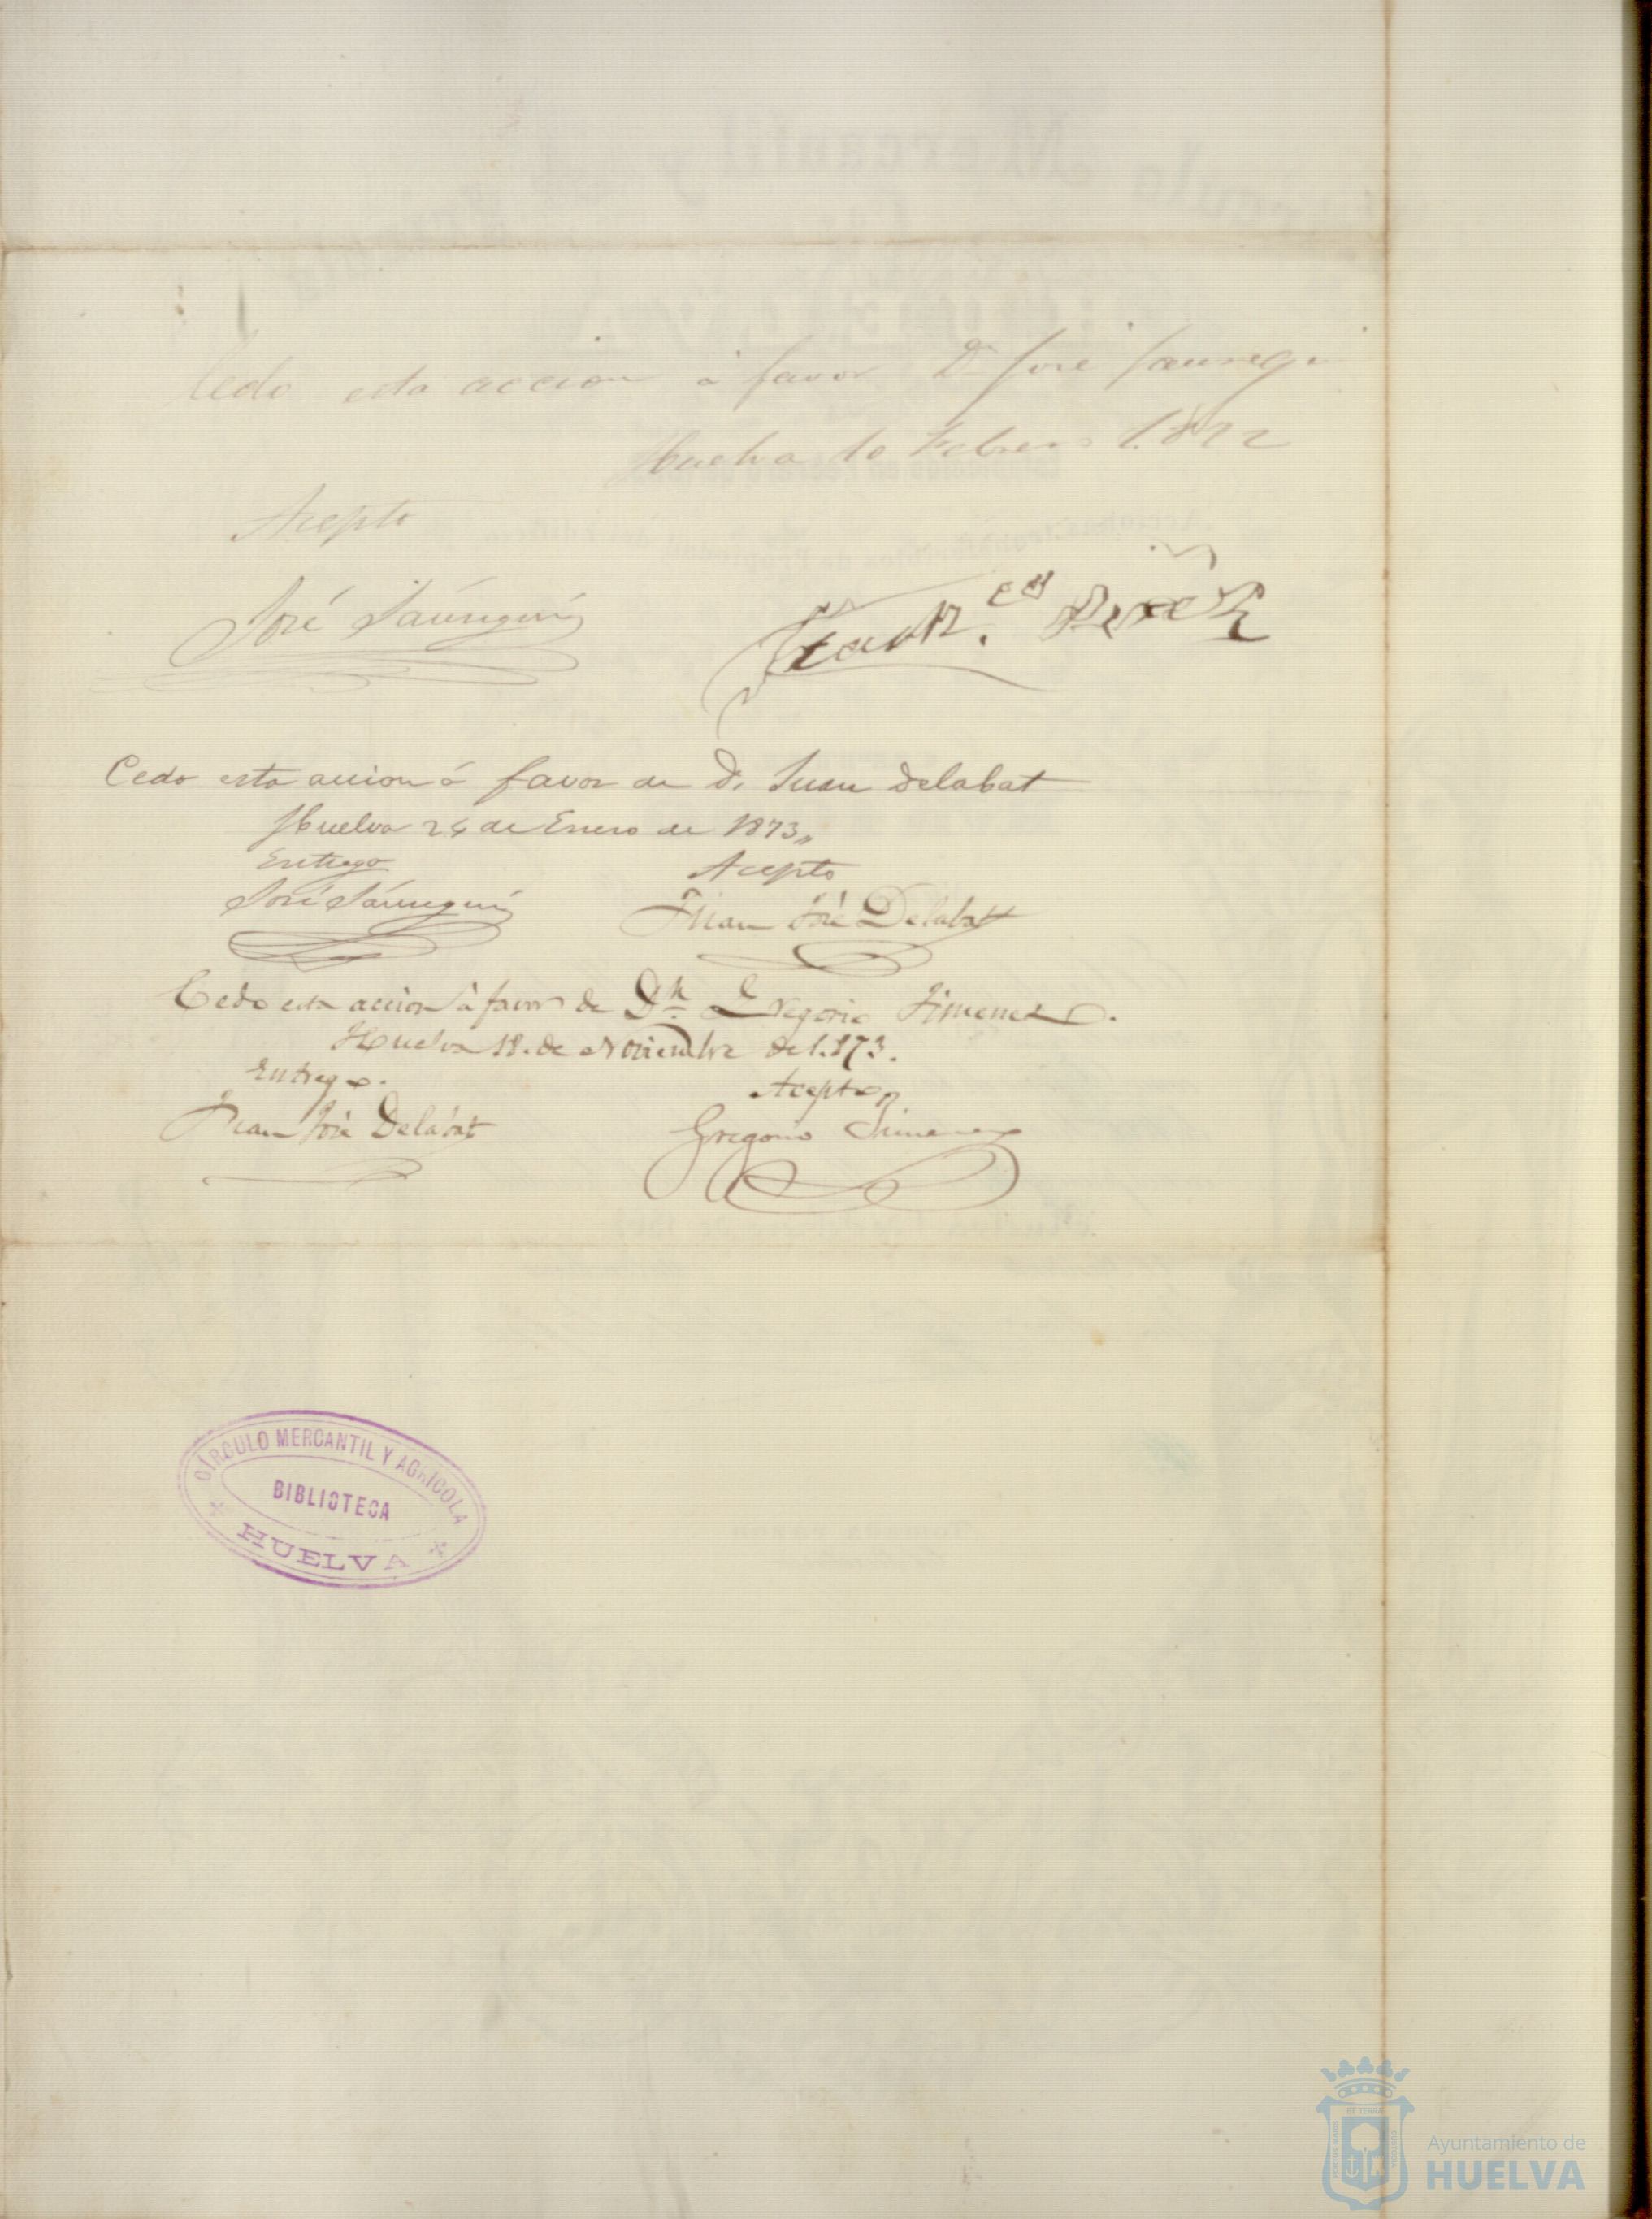 Cedo esta accion á favor Dn José Jauregui
Huelva 10 Febrero 1.872
Acepto
José Jáuregui
Cedo esta accion á favor de D. Juan Delabat
Huelva 24 de Enero de 1873,,
Entrego Acepto
José Jáuregui Juan José Delabat
Cedo esta accion á favor de Dn. Gregorio Jimenez.
Huelva 18. de Noviembre de 1.873.
Entrego. Acepto
Juan José Delabat Gregorio Jimenez
CÍRCULO MERCANTIL Y AGRÍCOLA
BIBLIOTECA
HUELVA
Ayuntamiento de
HUELVA